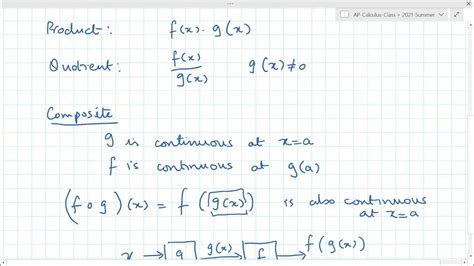 AP-Calculus-Class > 2021-Summer
Product: f(x) · g(x)
Quotient: f(x)/g(x) g(x) ≠ 0
Composite
g is continuous at x=a
f is continuous at g(a)
(f o g)(x) = f(g(x)) is also continuous
at x=a
x → g g(x) → f → f(g(x))